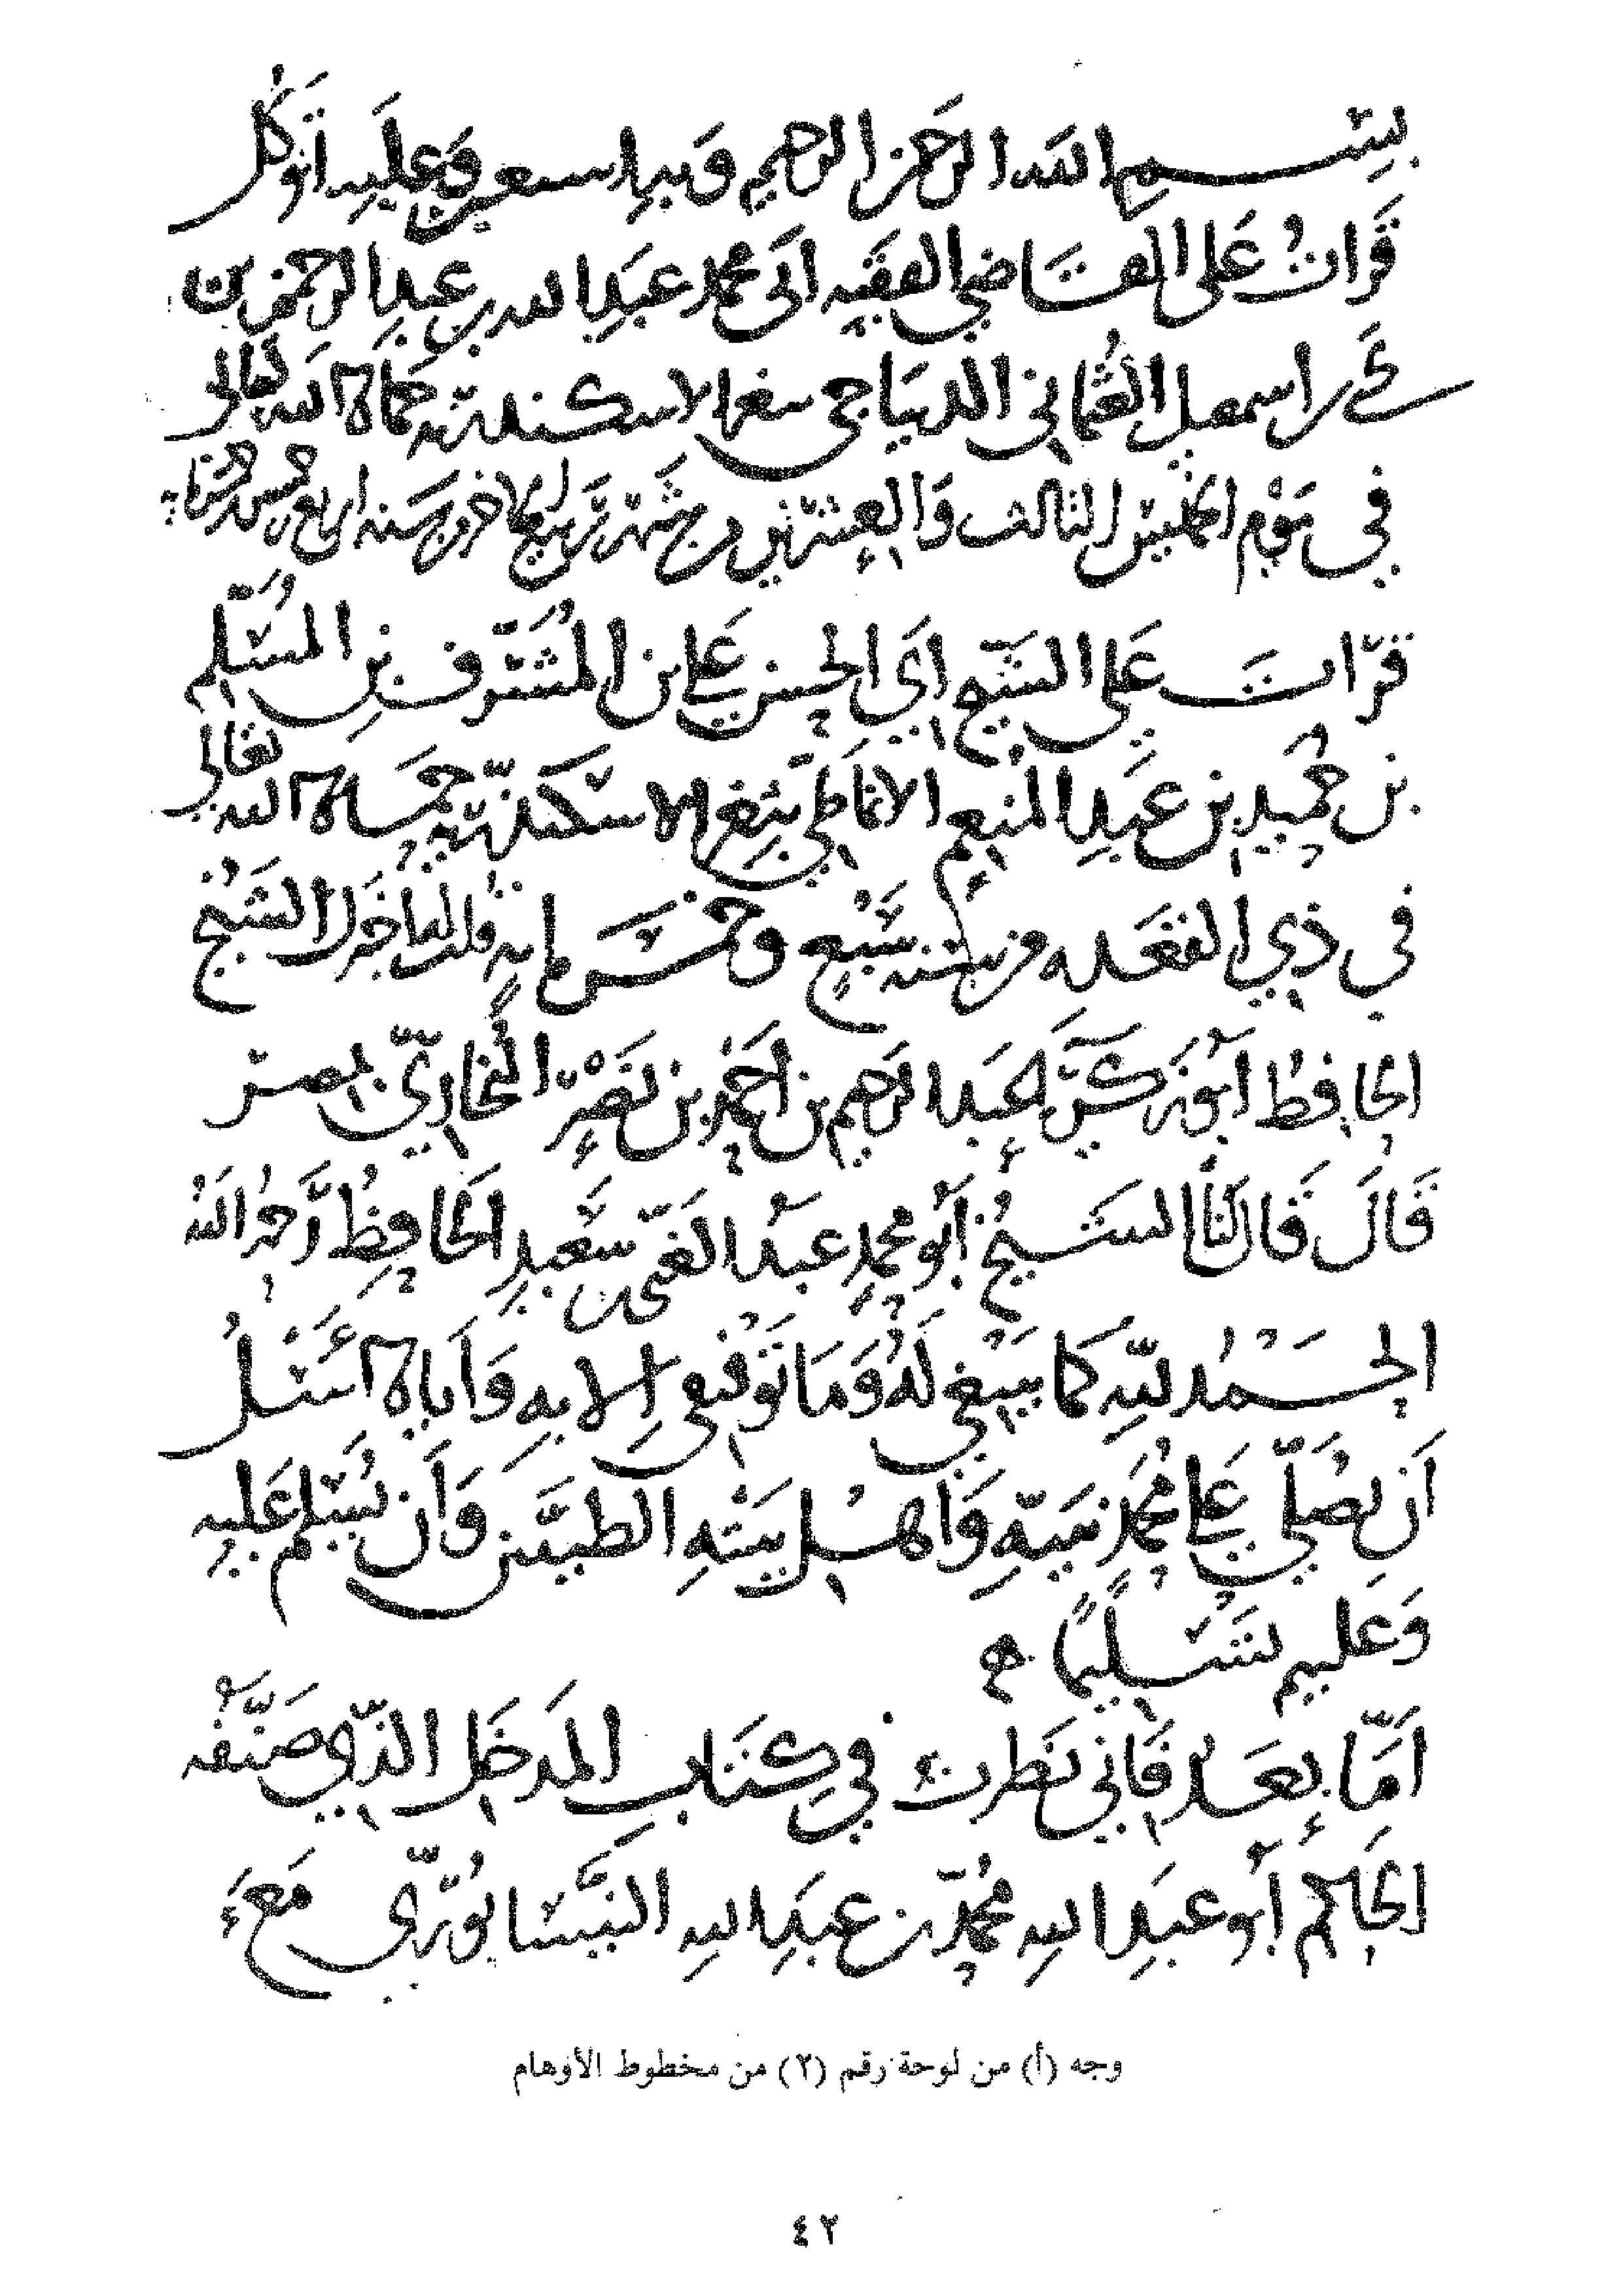 بسم الله الرحمن الرحيم وبه استعين وعليه اتوكل
قرات على القاضي الفقيه ابي محمد عبد الله بن عبد الرحمن بن
يحيى بن اسمعيل العثماني الديباجي بثغر الاسكندرية حماه الله تعالى
في يوم الخميس الثالث والعشرين من شهر ربيع الاخر من سنه اربع خمسين وخمسمايه
قرات على الشيخ ابي الحسن علي بن المشرف بن المسلم
بن حميد بن عبد المنعم الانماطي بثغر الاسكندرية حماه الله تعالى
في ذي القعده من سنه سبع وخمس مايه قلت له اخبرك الشيخ
الحافظ ابو زكريا عبد الرحيم بن احمد بن نصر البخاري بمصر
قال قال لنا الشيخ أبو محمد عبد الغني بن سعيد الحافظ رحمه الله
الحمد لله كما ينبغي له وما توفيقي الا به واياه أسئل
أن يصلي على محمد نبيه وأهل بيته الطيبين وأن يسلم عليه
وعليهم تسليما
اما بعد فاني نظرت في كتاب المدخل الذي صنفه
الحاكم أبو عبد الله محمد بن عبد الله النيسابوري
وجه (أ) من لوحة رقم (٢) من مخطوط الأوهام
٤٢